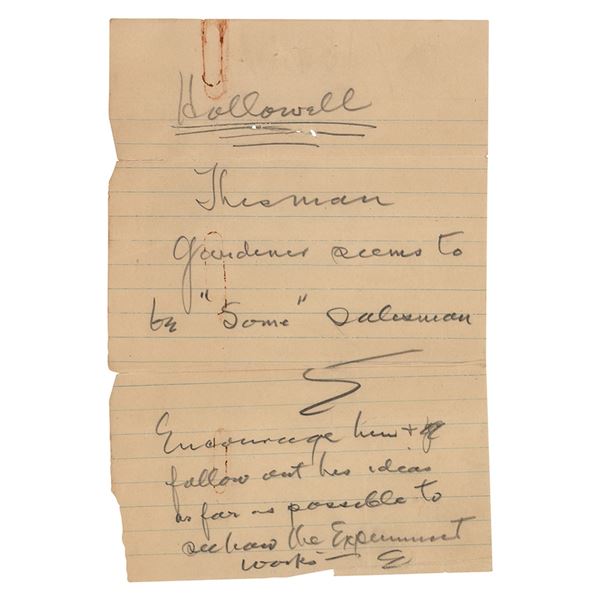 Hollowell
This man
Gardener seems to
be "Some" salesman
E
Encourage him + 
follow out his ideas
as far as possible to
see how the Experiment
works —  E